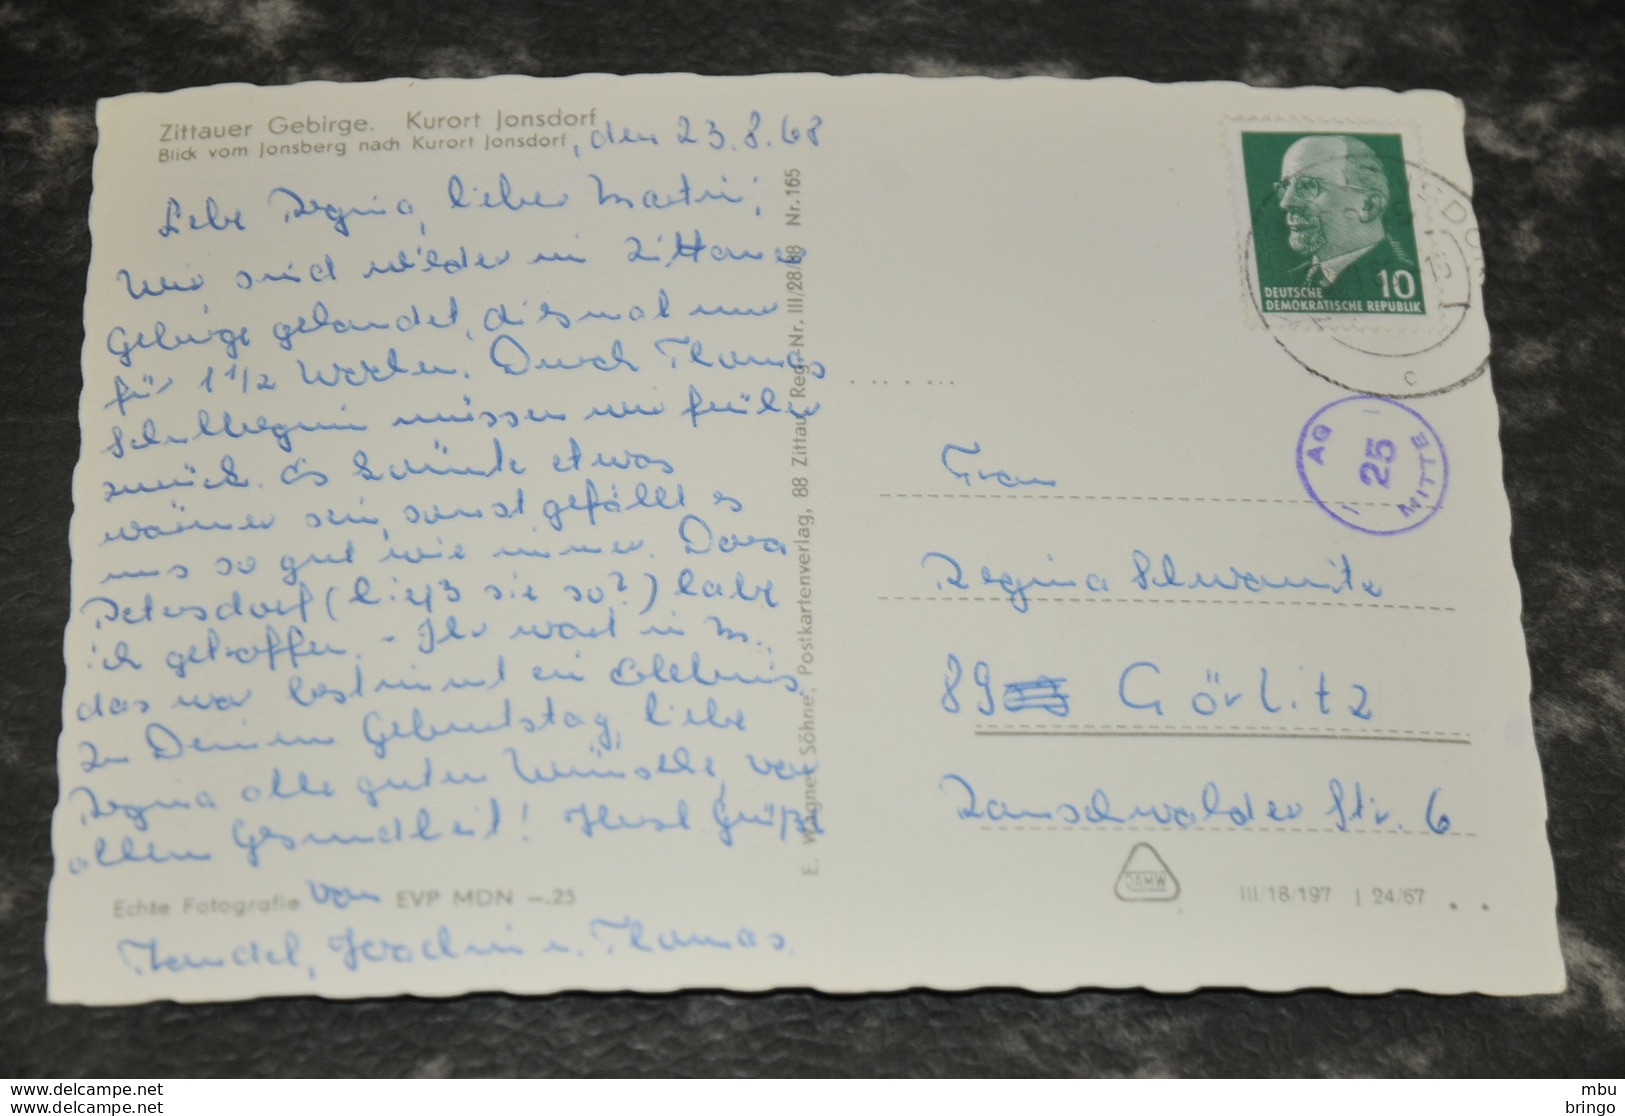 Zittauer Gebirge. Kurort Jonsdorf
Blick vom Jonsberg nach Kurort Jonsdorf
, den 23.8.68
Liebe Regina, lieber Martin,
Wir sind wieder im Zittauer
Gebirge gelandet, diesmal nur
für 1 1/2 Wochen. Durch Thomas
Schulbeginn müssen wir früher
zurück. Es könnte etwas
wärmer sein, sonst gefällt es
uns so gut wie immer. Dora
Petersdorf (hieß sie so?) habe
ich getroffen. – Ihr wart in M.,
das war bestimmt ein Erlebnis.
Zu Deinem Geburtstag, liebe
Regina alle guten Wünsche, vor
allem Gesundheit! Herzl. Grüße
Echte Fotografie von EVP MDN –.25
Joachim u. Thomas.
E. Wagner Söhne, Postkartenverlag, 88 Zittau Reg.-Nr. III/28/88 Nr. 165
10
DEUTSCHE
DEMOKRATISCHE REPUBLIK
C
AG
25
MITTE
Frau
Regina Schwanitz
89 Görlitz
Rauschwalder Str. 6
DAMW
III/18/197 J 24/67
www.delcampe.net
www.delcampe.net
mbu
bringo